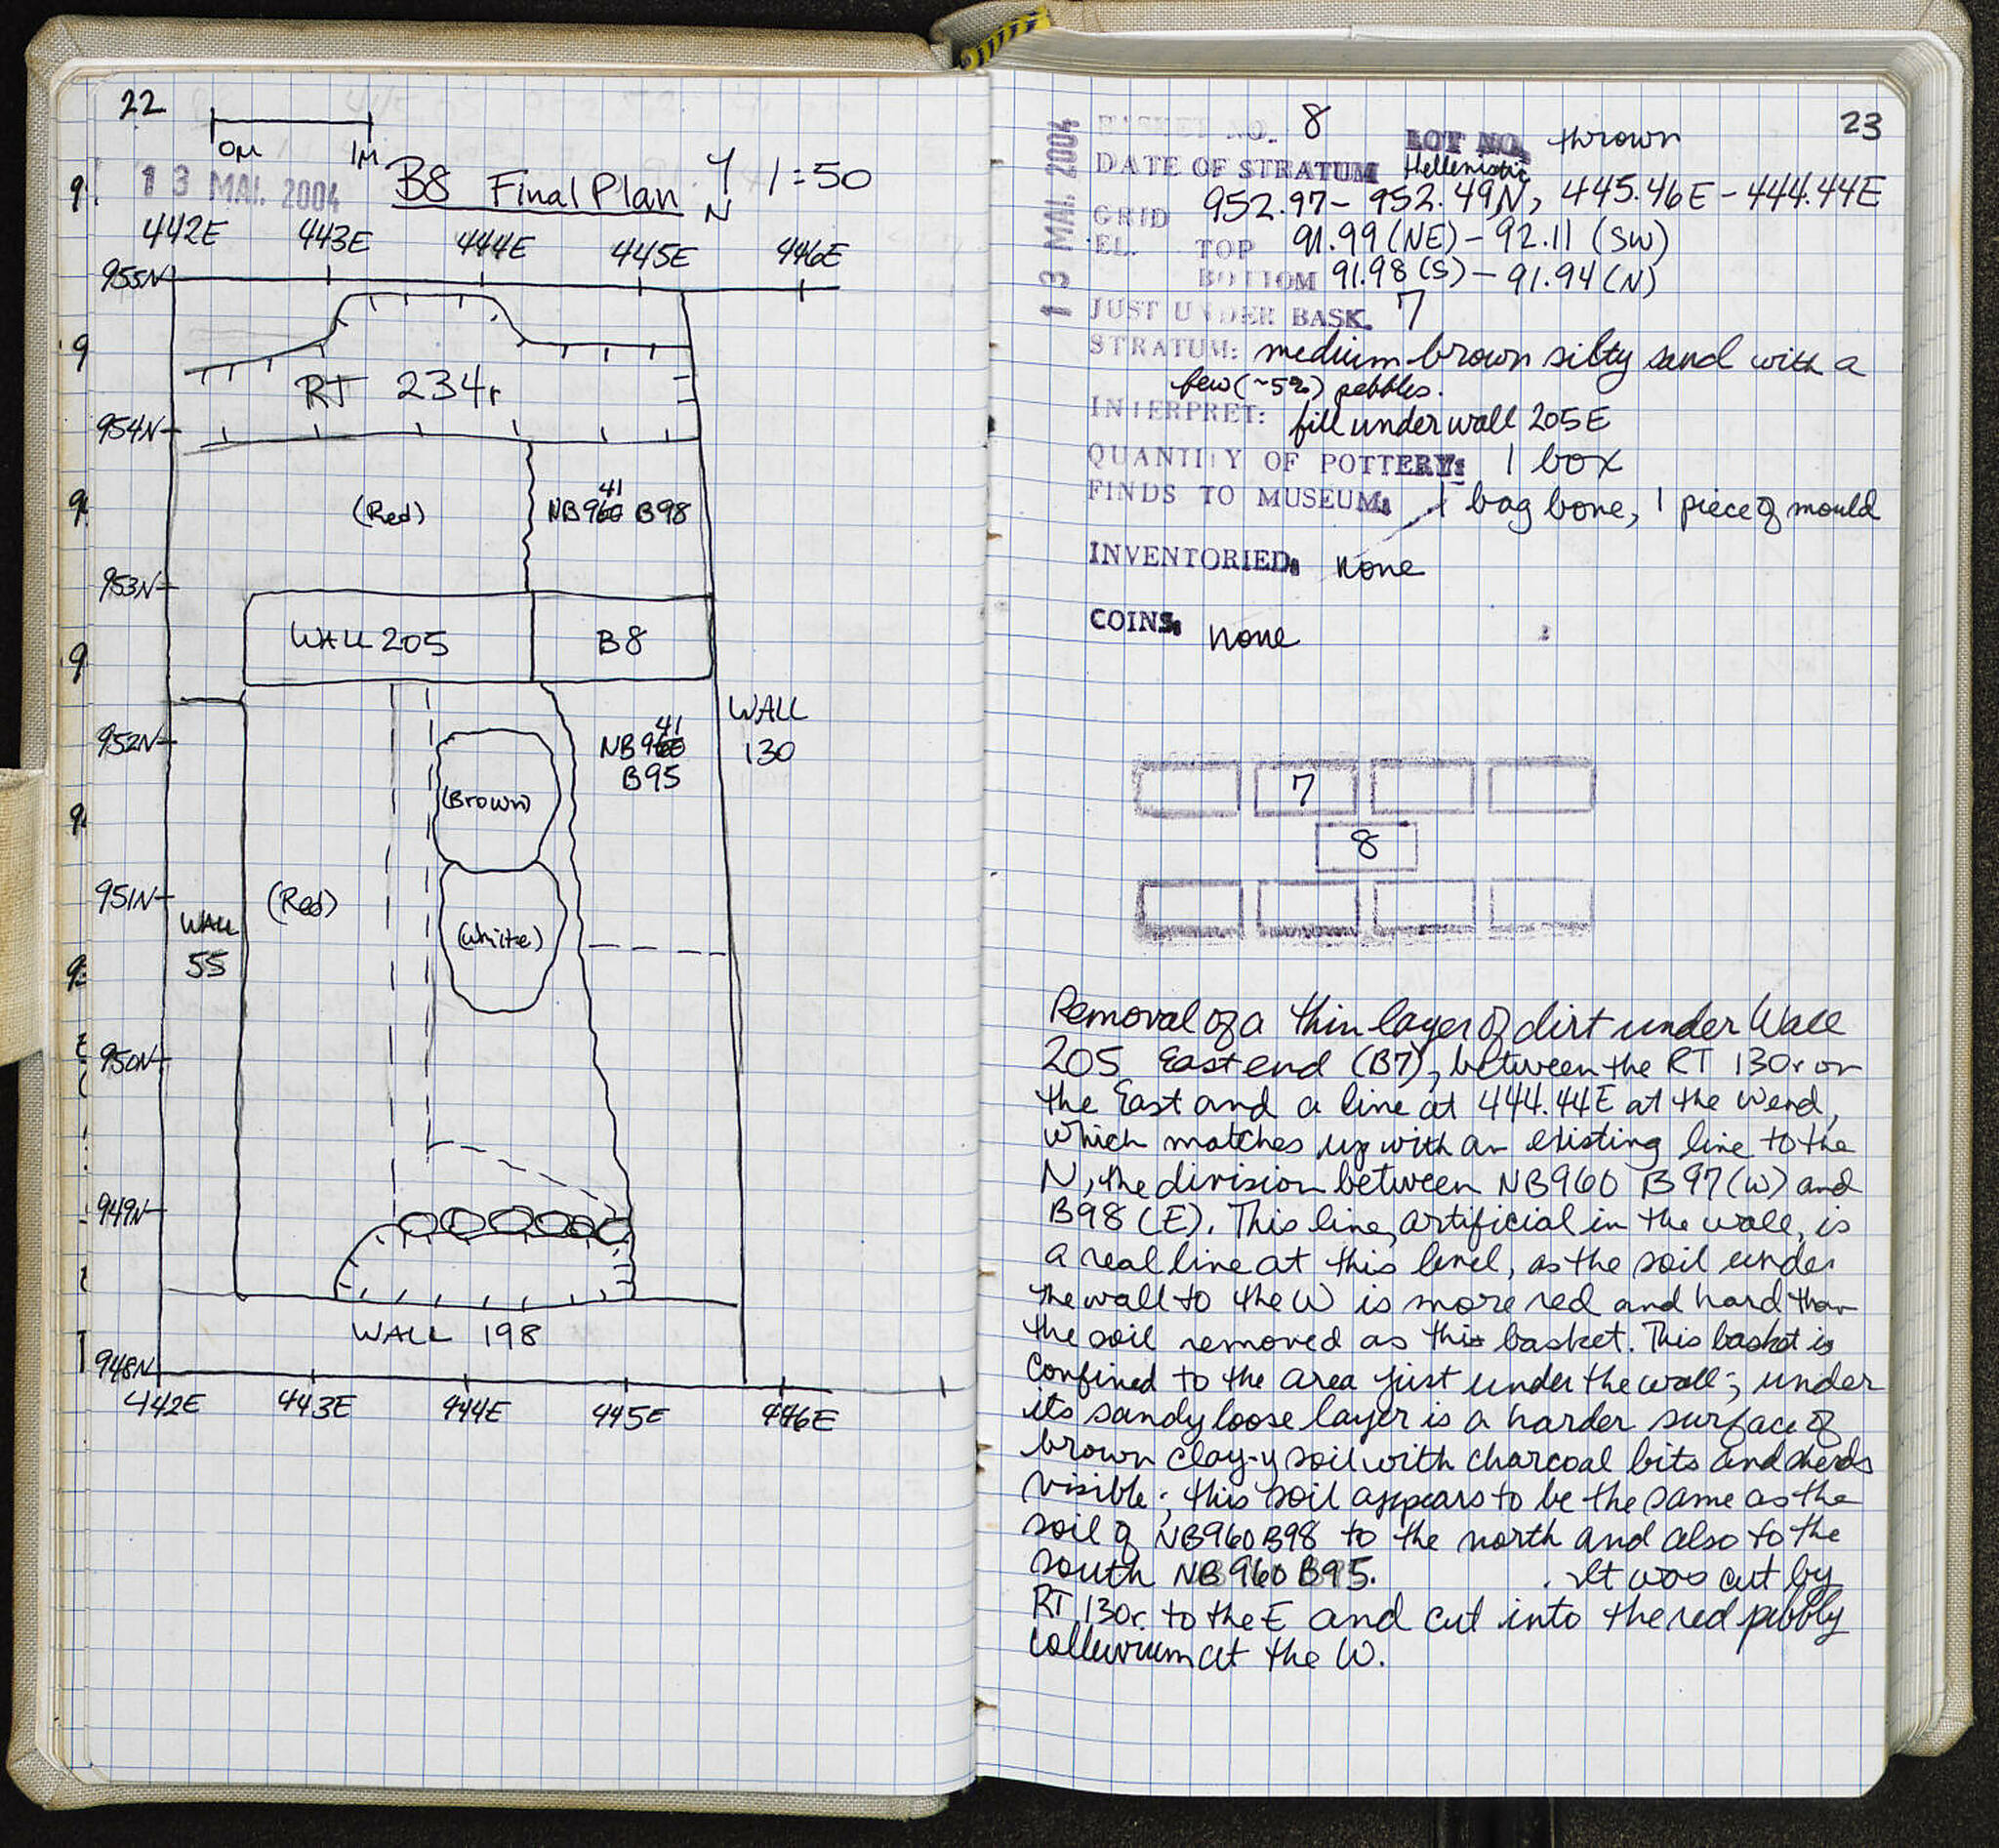 22
0M 1M
13 MAI. 2004
B8 Final Plan N 1:50
442E 443E 444E 445E 446E
955N
RT 234r
954N
(Red)
41
NB960 B98
953N
WALL 205 B8
WALL
130
952N
41
NB960
B95
(Brown)
951N
(Red)
WALL
55
(White)
950N
949N
WALL 198
948N
442E 443E 444E 445E 446E
23
13 MAI. 2004
BASKET NO. 8 LOT NO. thrown
DATE OF STRATUM Hellenistic
GRID 952.97-952.49N, 445.46E-444.44E
EL. TOP 91.99(NE)-92.11(SW)
BOTTOM 91.98(S)-91.94(N)
JUST UNDER BASK. 7
STRATUM: medium brown silty sand with a
few(~5%) pebbles.
INTERPRET: fill under wall 205E
QUANTITY OF POTTERY: 1 box
FINDS TO MUSEUM: 1 bag bone, 1 piece of mould
INVENTORIED: none
COINS: none
7
8
Removal of a thin layer of dirt under Wall
205 East end (B7), between the RT 130r on
the East and a line at 444.44E at the Wend,
which matches up with an existing line to the
N, the division between NB960 B97(W) and
B98(E). This line, artificial in the wall, is
a real line at this level, as the soil under
the wall to the W is more red and hard than
the soil removed as this basket. This basket is
confined to the area just under the wall; under
its sandy loose layer is a harder surface of
brown clay-y soil with charcoal bits and sherds
visible; this soil appears to be the same as the
soil of NB960B98 to the north and also to the
south NB960 B95. It was cut by
RT 130r to the E and cut into the red pebbly
colluvium at the W.